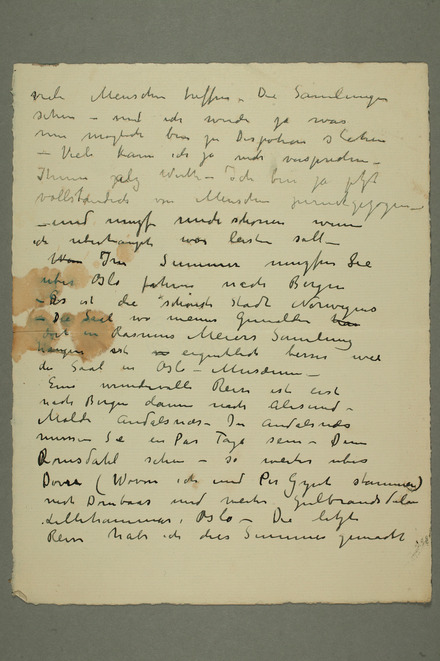 viele Menschen treffen – Die Samlungen
sehen – und ich werde ja was
nur möglich bin zu Disposition stehen
– Viel kann ich ja nicht versprechen –
Ihnen – Ich bin ja jetzt
vollständich von Menschen zurückgezogen –
– und muss mich schonen wenn
ich überhaupt was leisten soll –
Im Sommer müssen Sie
über Oslo fahren nach Bergen
– Es ist die schönste Stadt Norwegens
– Die Saal wo meine Gemälde
dort in Rasmus Meiers Samlung
hängen ist eigentlich besser wie
der Saal in Oslo – Museum –
Eine wundervolle Reise ist erst
nach Bergen dann nach Alesund –
Molde Andalsnæs – In Andalsnæs
mussen Sie ein Par Tage sein – Dem
Romsdahl sehen – so weiter über
Dovre (Wovon ich und Per Gynt stammen)
nach Dombaas und weiter Gulbrandsdalen
Lillehammer, Oslo – Die letzte
Reise habe ich dies Sommer gemacht